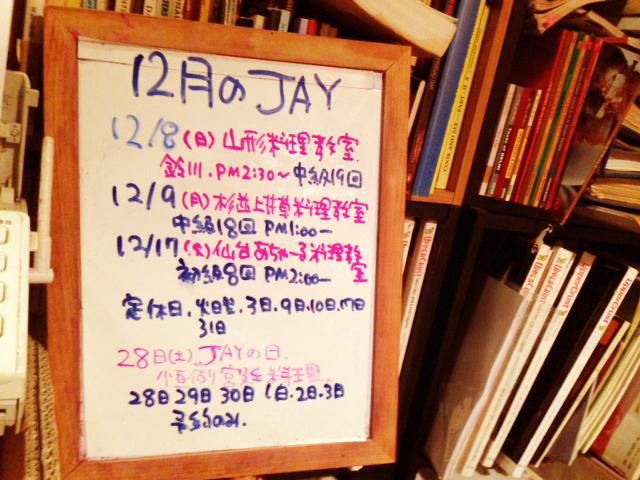 12月のJAY
12/8(日)山形料理教室
鈴川.PM2:30~中級19回
12/9(月)杉並上井草料理教室
中級18回 PM1:00—
12/17(火)仙台あちゃーる料理教室
初級8回 PM2:00—
定休日.火曜.3日.9日.10日.17日
31日
28日(土)JAYの日.
恒例宮廷料理
28日29日30日1日.2日.3日
予約のみ.
UpperCrust
UpperCrust
UpperCrust
UpperCrust